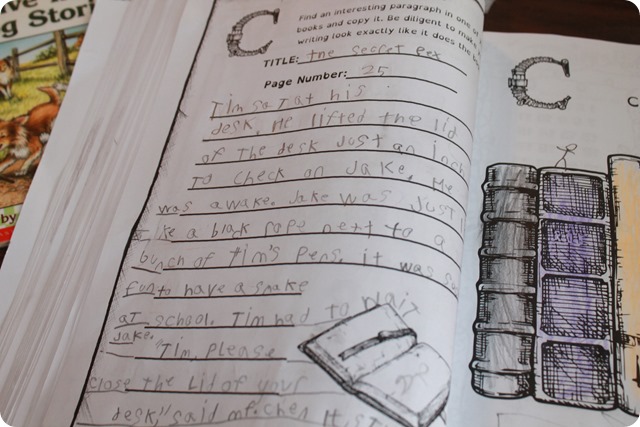 Find an interesting paragraph in one of
books and copy it. Be diligent to make
writing look exactly like it does the b
TITLE: the secret pex
Page Number: 25
Tim sat at his
desk. He lifted the lid
of The desk Just an inch
To check on Jake. He
was awake. Jake was Just
like a black rope next to a
bunch of Tim's Pens. it was so
fun to have a snake
at school. Tim had to wait
Jake.
"Tim, Please
close the Lid of your
desk," said mr. chen
C
C
g Stori
by